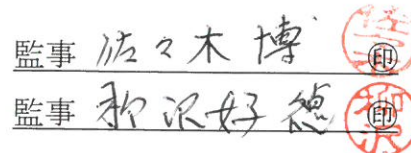 監事 佐々木 博 ㊞
監事 柳沢好德 ㊞